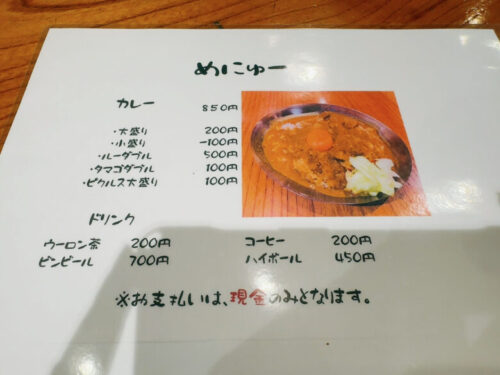 めにゅー
カレー 850円
・大盛り 200円
・小盛り -100円
・ルーダブル 500円
・タマゴダブル 100円
・ピクルス大盛り 100円
ドリンク
ウーロン茶 200円 コーヒー 200円
ビンビール 700円 ハイボール 450円
※お支払いは、現金のみとなります。